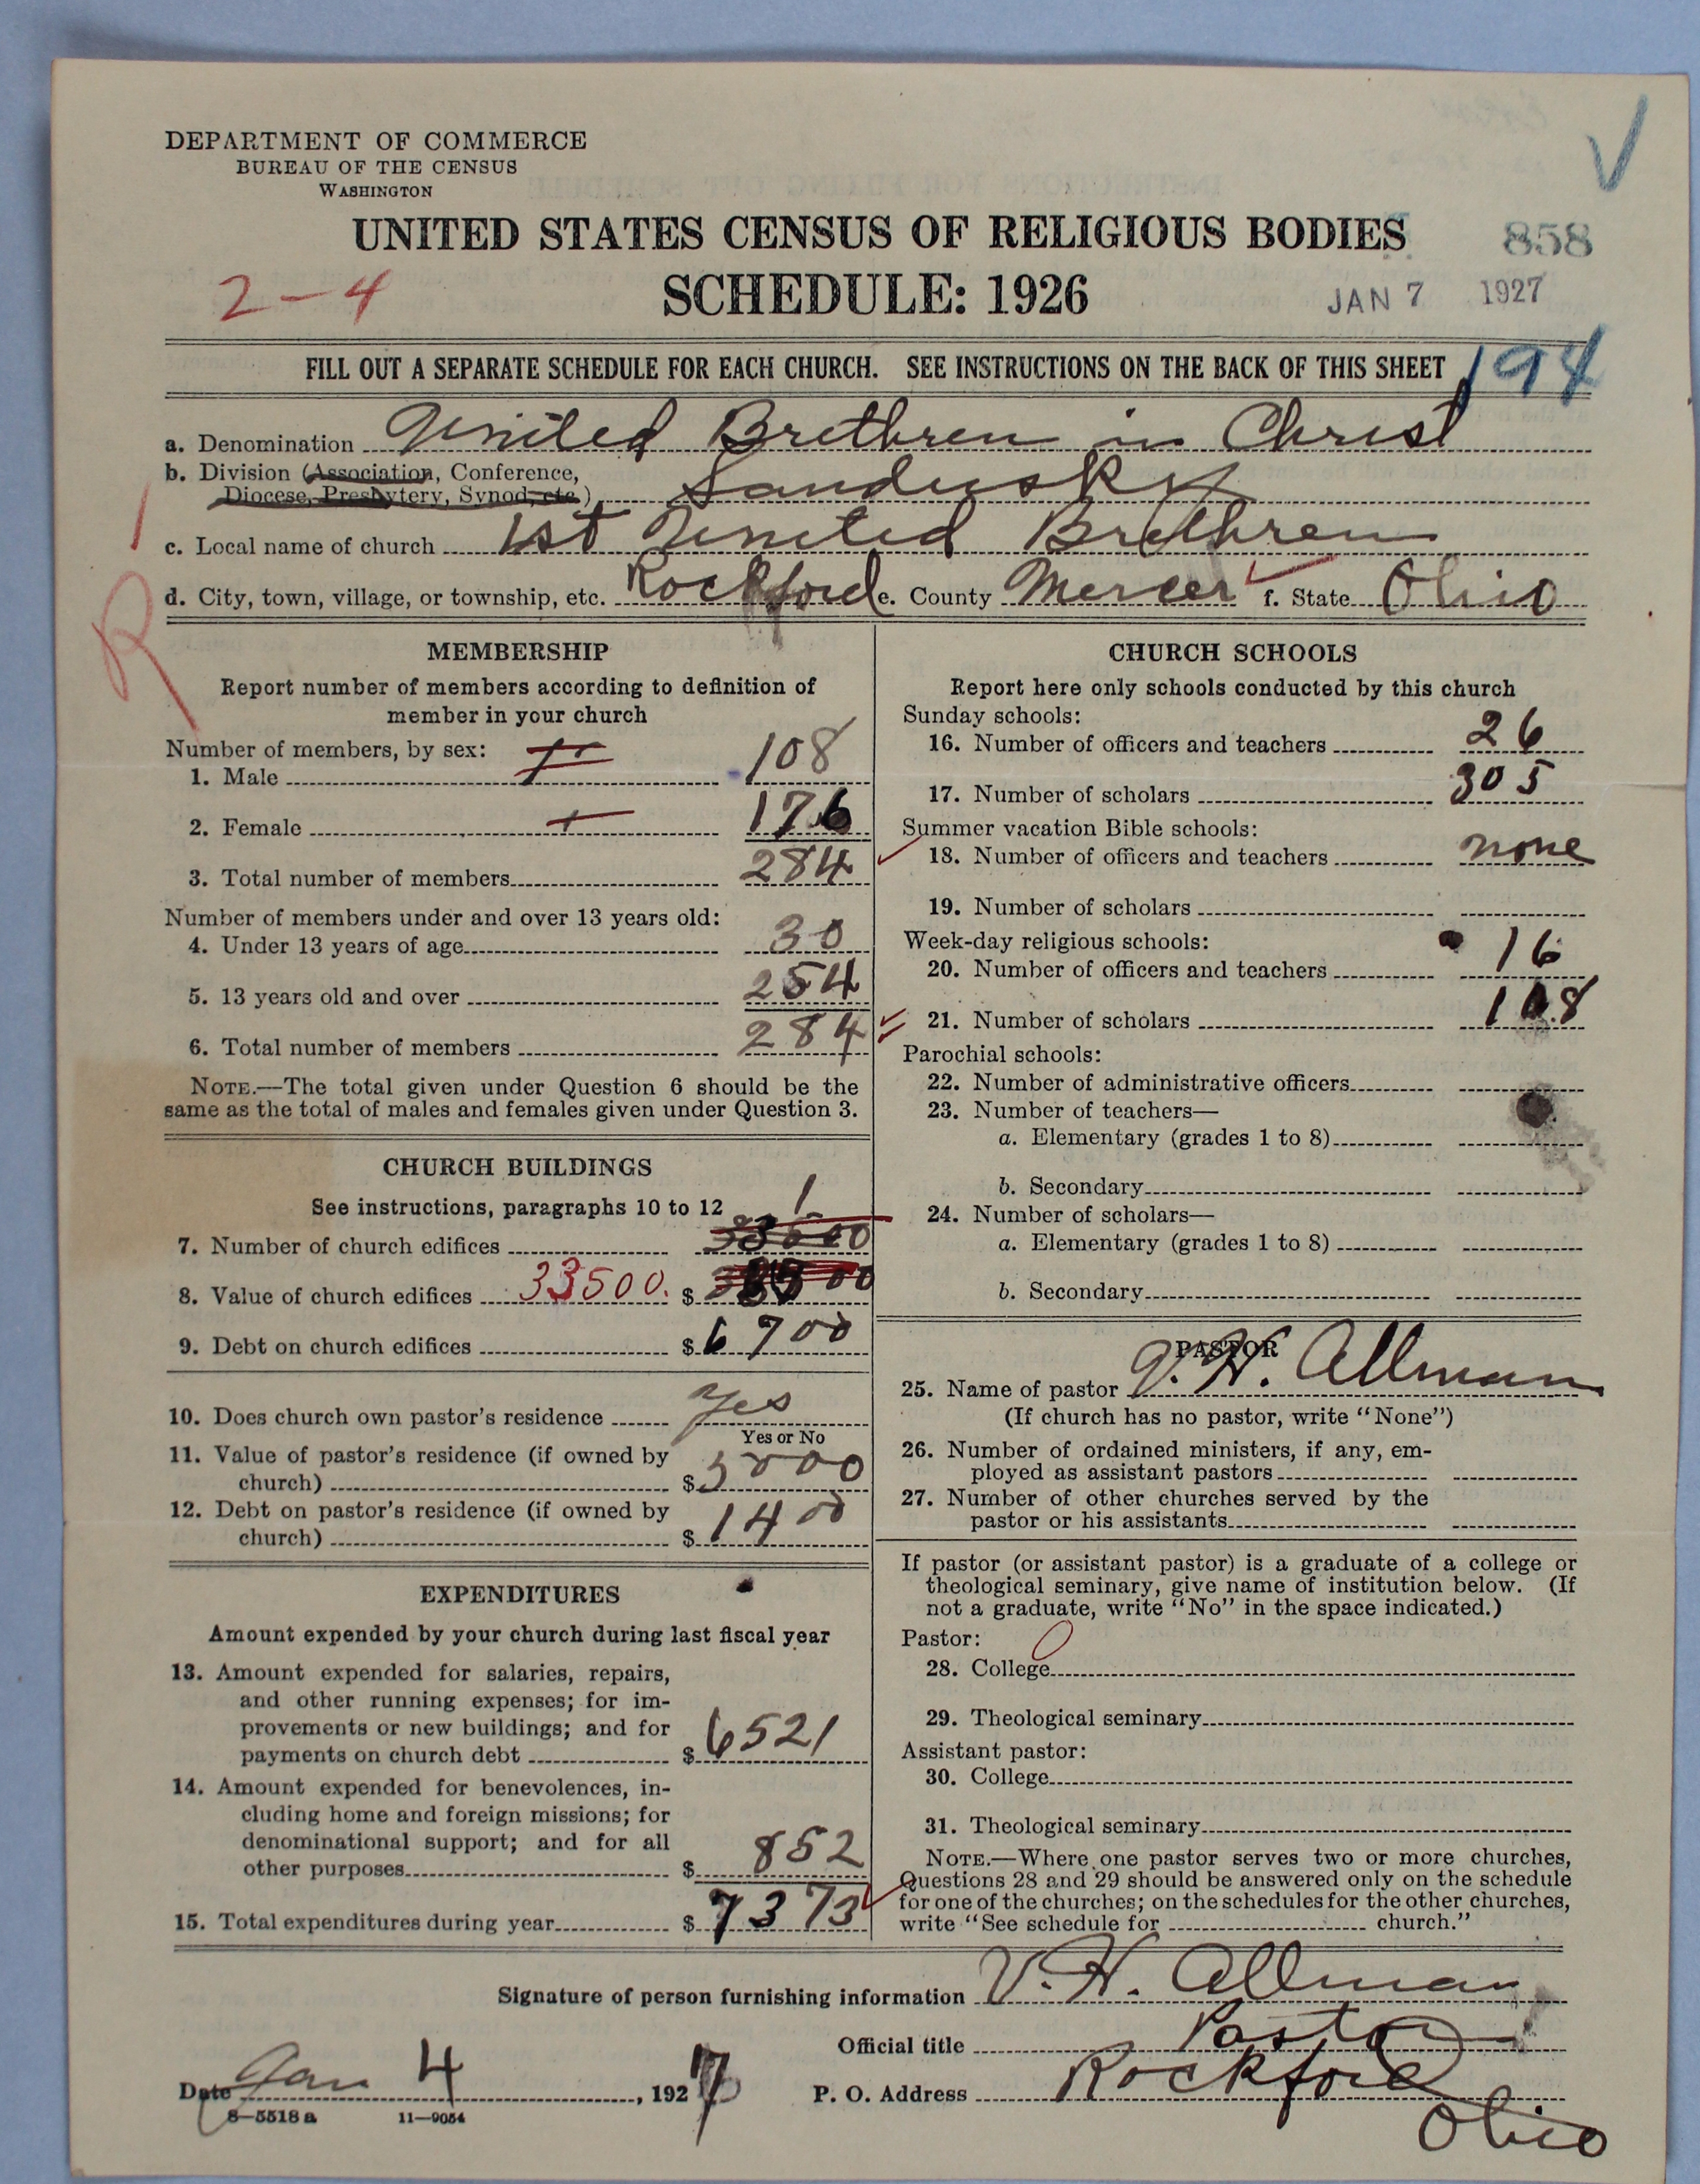 DEPARTMENT OF COMMERCE
BUREAU OF THE CENSUS
WASHINGTON
UNITED STATES CENSUS OF RELIGIOUS BODIES
858
2-4
SCHEDULE: 1926
JAN 7 1927
FILL OUT A SEPARATE SCHEDULE FOR EACH CHURCH. SEE INSTRUCTIONS ON THE BACK OF THIS SHEET
194
a. Denomination United Brethren in Christ
b. Division (Association, Conference,
Diocese, Presbytery, Synod, etc.) Sandusky
c. Local name of church 1st United Brethren
d. City, town, village, or township, etc. Rockford e. County Mercer f. State Ohio
R
MEMBERSHIP
Report number of members according to definition of
member in your church
Number of members, by sex:
1. Male 108
2. Female 176
3. Total number of members 284
Number of members under and over 13 years old:
4. Under 13 years of age 30
5. 13 years old and over 254
6. Total number of members 284
NOTE.—The total given under Question 6 should be the
same as the total of males and females given under Question 3.
CHURCH BUILDINGS
See instructions, paragraphs 10 to 12
7. Number of church edifices 1
8. Value of church edifices 33500. $
9. Debt on church edifices $6700
10. Does church own pastor's residence Yes
Yes or No
11. Value of pastor's residence (if owned by
church) $5000
12. Debt on pastor's residence (if owned by
church) $1400
EXPENDITURES
Amount expended by your church during last fiscal year
13. Amount expended for salaries, repairs,
and other running expenses; for im-
provements or new buildings; and for
payments on church debt $6521
14. Amount expended for benevolences, in-
cluding home and foreign missions; for
denominational support; and for all
other purposes $852
15. Total expenditures during year $7373
CHURCH SCHOOLS
Report here only schools conducted by this church
Sunday schools:
16. Number of officers and teachers 26
17. Number of scholars 305
Summer vacation Bible schools:
18. Number of officers and teachers none
19. Number of scholars
Week-day religious schools:
20. Number of officers and teachers 16
21. Number of scholars 108
Parochial schools:
22. Number of administrative officers
23. Number of teachers—
a. Elementary (grades 1 to 8)
b. Secondary
24. Number of scholars—
a. Elementary (grades 1 to 8)
b. Secondary
PASTOR
25. Name of pastor V. H. Allman
(If church has no pastor, write "None")
26. Number of ordained ministers, if any, em-
ployed as assistant pastors
27. Number of other churches served by the
pastor or his assistants
If pastor (or assistant pastor) is a graduate of a college or
theological seminary, give name of institution below. (If
not a graduate, write "No" in the space indicated.)
Pastor:
28. College
29. Theological seminary
Assistant pastor:
30. College
31. Theological seminary
NOTE.—Where one pastor serves two or more churches,
Questions 28 and 29 should be answered only on the schedule
for one of the churches; on the schedules for the other churches,
write "See schedule for church."
Signature of person furnishing information V. H. Allman
Official title Pastor
Date Jan 4, 1927 P. O. Address Rockford
Ohio
8-5518a 11-9054